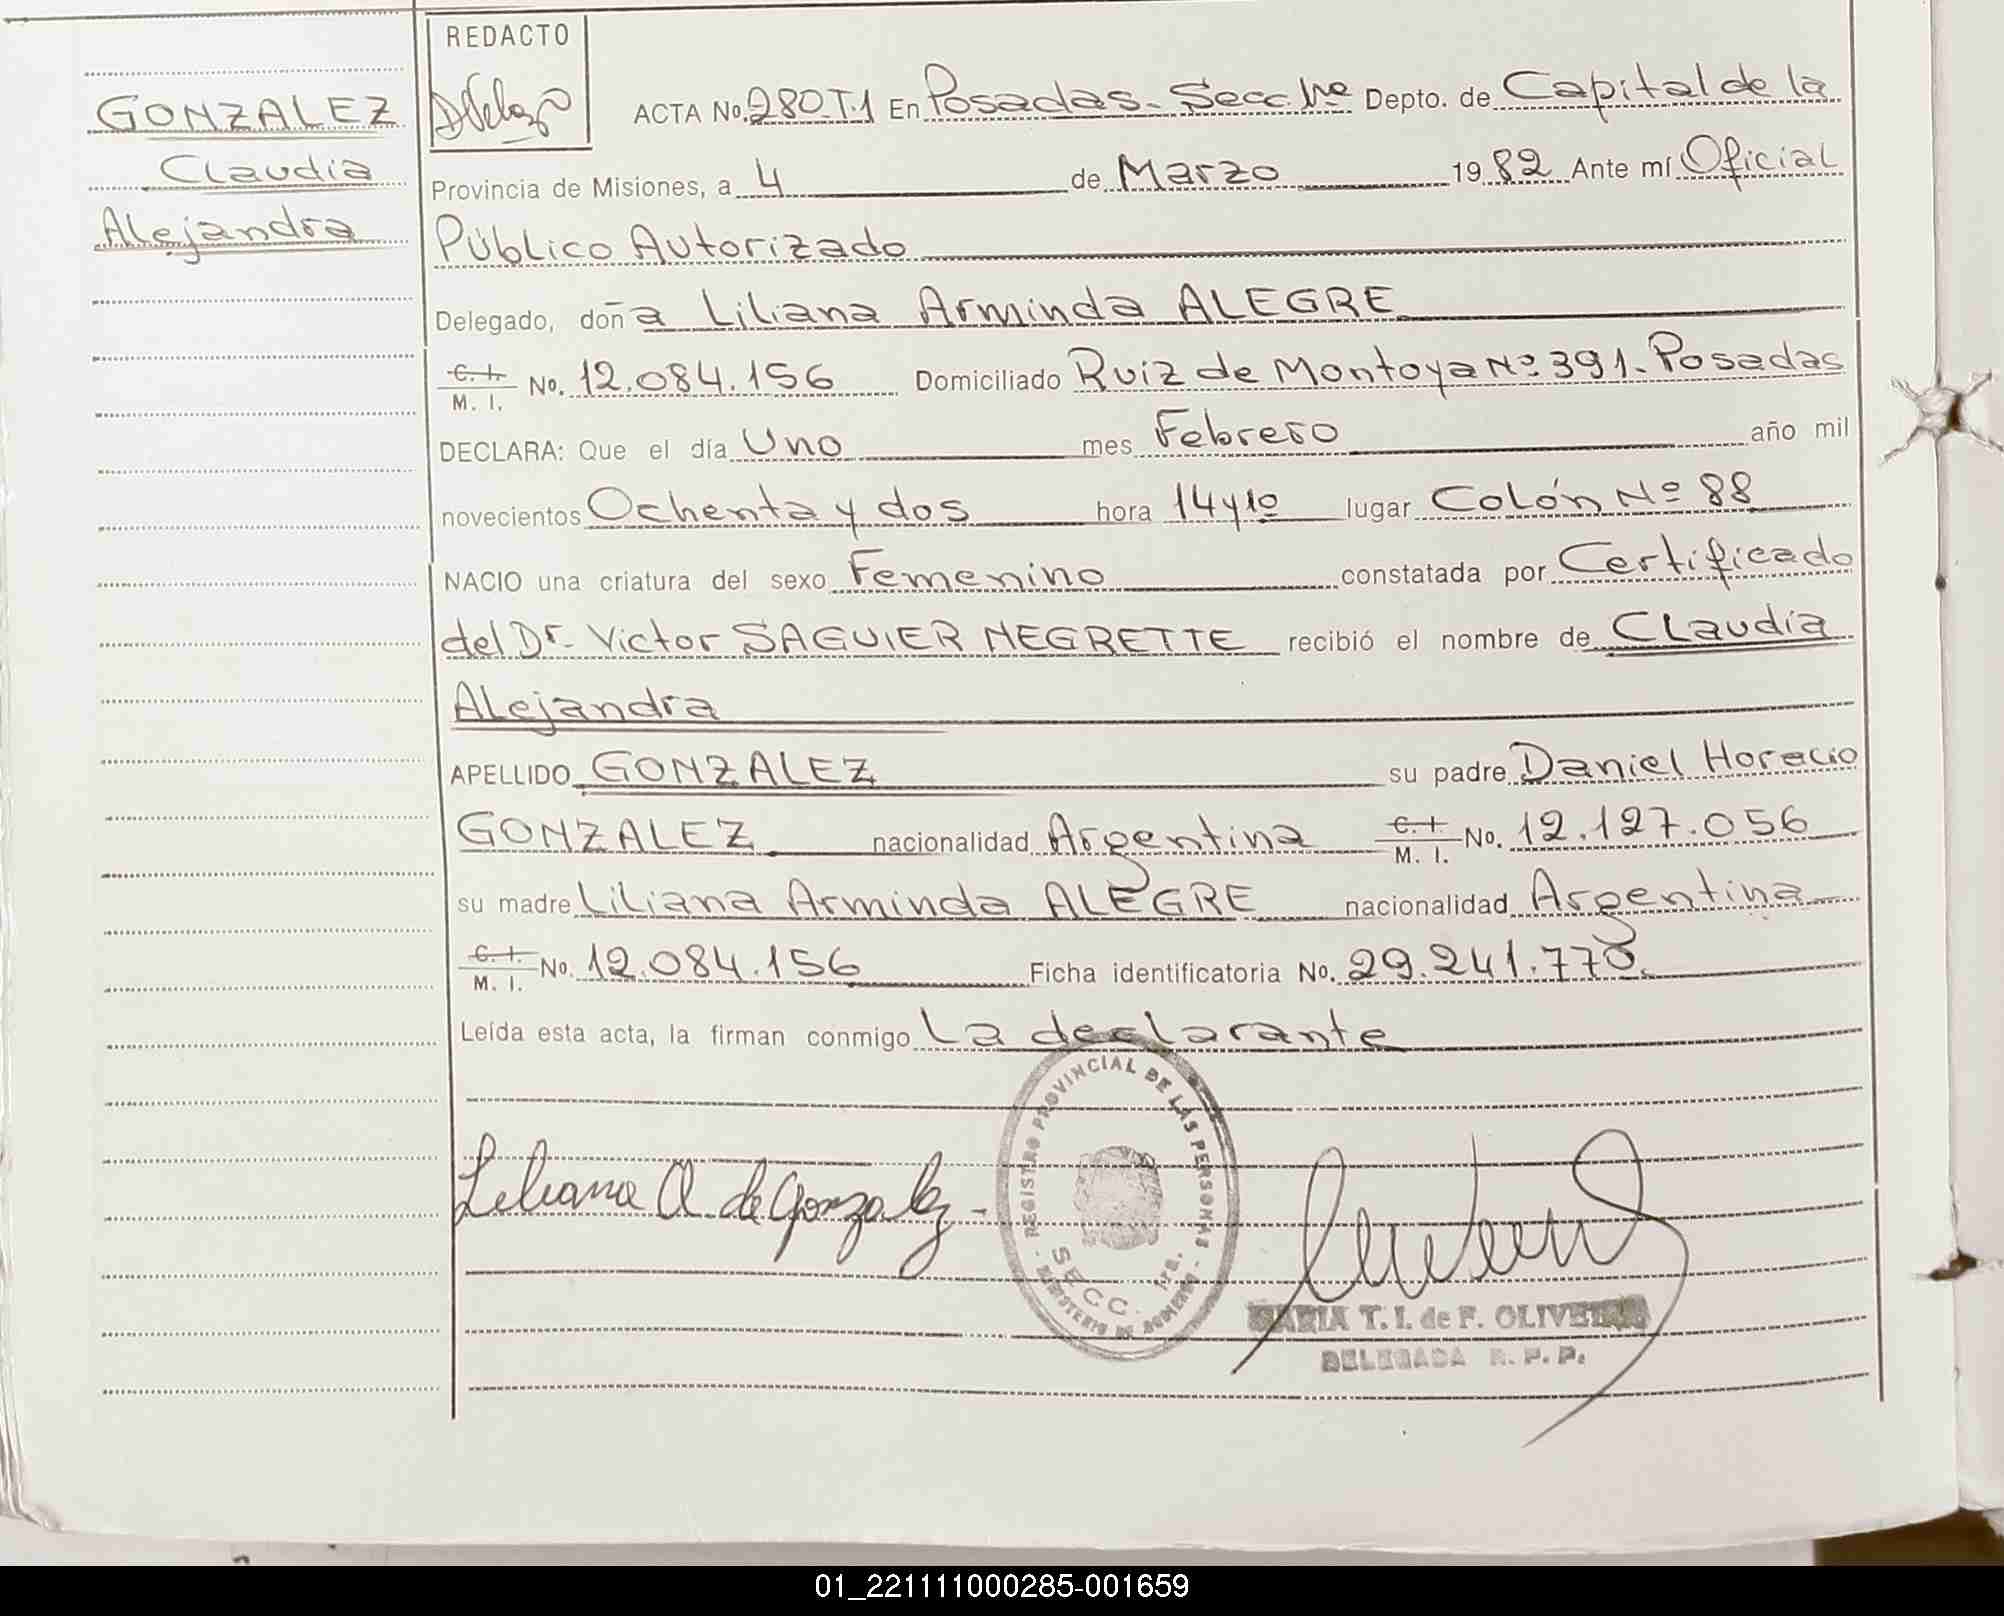 GONZALEZ
Claudia
Alejandra
REDACTO
ACTA No. 280 T.1 En Posadas - Secc 1ra Depto. de Capital de la
Provincia de Misiones, a 4 de Marzo 1982 Ante mí Oficial
Público Autorizado
Delegado, doña Liliana Arminda ALEGRE
C. I. M. I. No. 12.084.156 Domiciliado Ruiz de Montoya Nº 391 - Posadas
DECLARA: Que el día Uno mes Febrero año mil
novecientos Ochenta y dos hora 14 y 10 lugar Colón Nº 88
NACIO una criatura del sexo Femenino constatada por Certificado
del Dr. Victor SAGUIER NEGRETTE recibió el nombre de Claudia
Alejandra
APELLIDO GONZALEZ su padre Daniel Horacio
GONZALEZ nacionalidad Argentina C. I. M. I. No. 12.127.056
su madre Liliana Arminda ALEGRE nacionalidad Argentina
C. I. M. I. No. 12.084.156 Ficha identificatoria No. 29.241.778.
Leída esta acta, la firman conmigo La declarante
Liliana A. de Gonzalez -
REGISTRO PROVINCIAL DE LAS PERSONAS
SECC. 1ra.
MINISTERIO DE GOBIERNO
MARIA T. I. de F. OLIVEIRA
DELEGADA R. P. P.
01_221111000285-001659